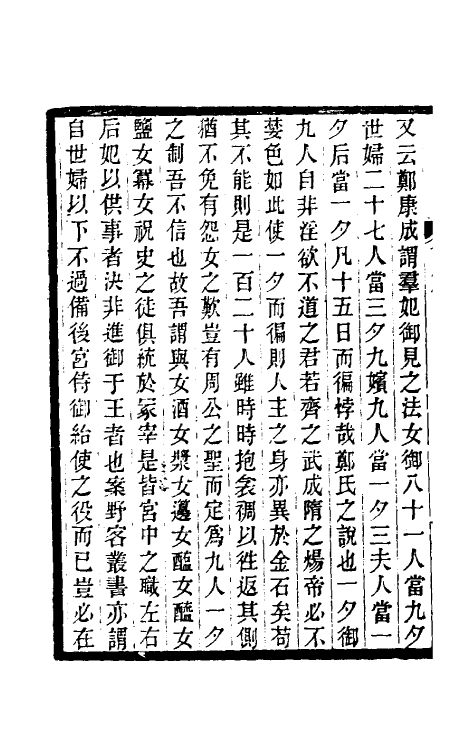 又云鄭康成謂羣妃御見之法女御八十一人當九夕
世婦二十七人當三夕九嬪九人當一夕三夫人當一
夕后當一夕凡十五日而徧悖哉鄭氏之說也一夕御
九人自非淫欲不道之君若齊之武成隋之煬帝必不
荽色如此使一夕而徧則人主之身亦異於金石矣苟
其不能則是一百二十人雖時時抱衾裯以徃返其側
猶不免有怨女之歎豈有周公之聖而定爲九人一夕
之制吾不信也故吾謂與女酒女漿女籩女醢女醯女
鹽女冪女祝史之徒俱統於冢宰是皆宮中之職左右
后妃以供事者決非進御于王者也案野客叢書亦謂
自世婦以下不過備後宮侍御給使之役而已豈必在